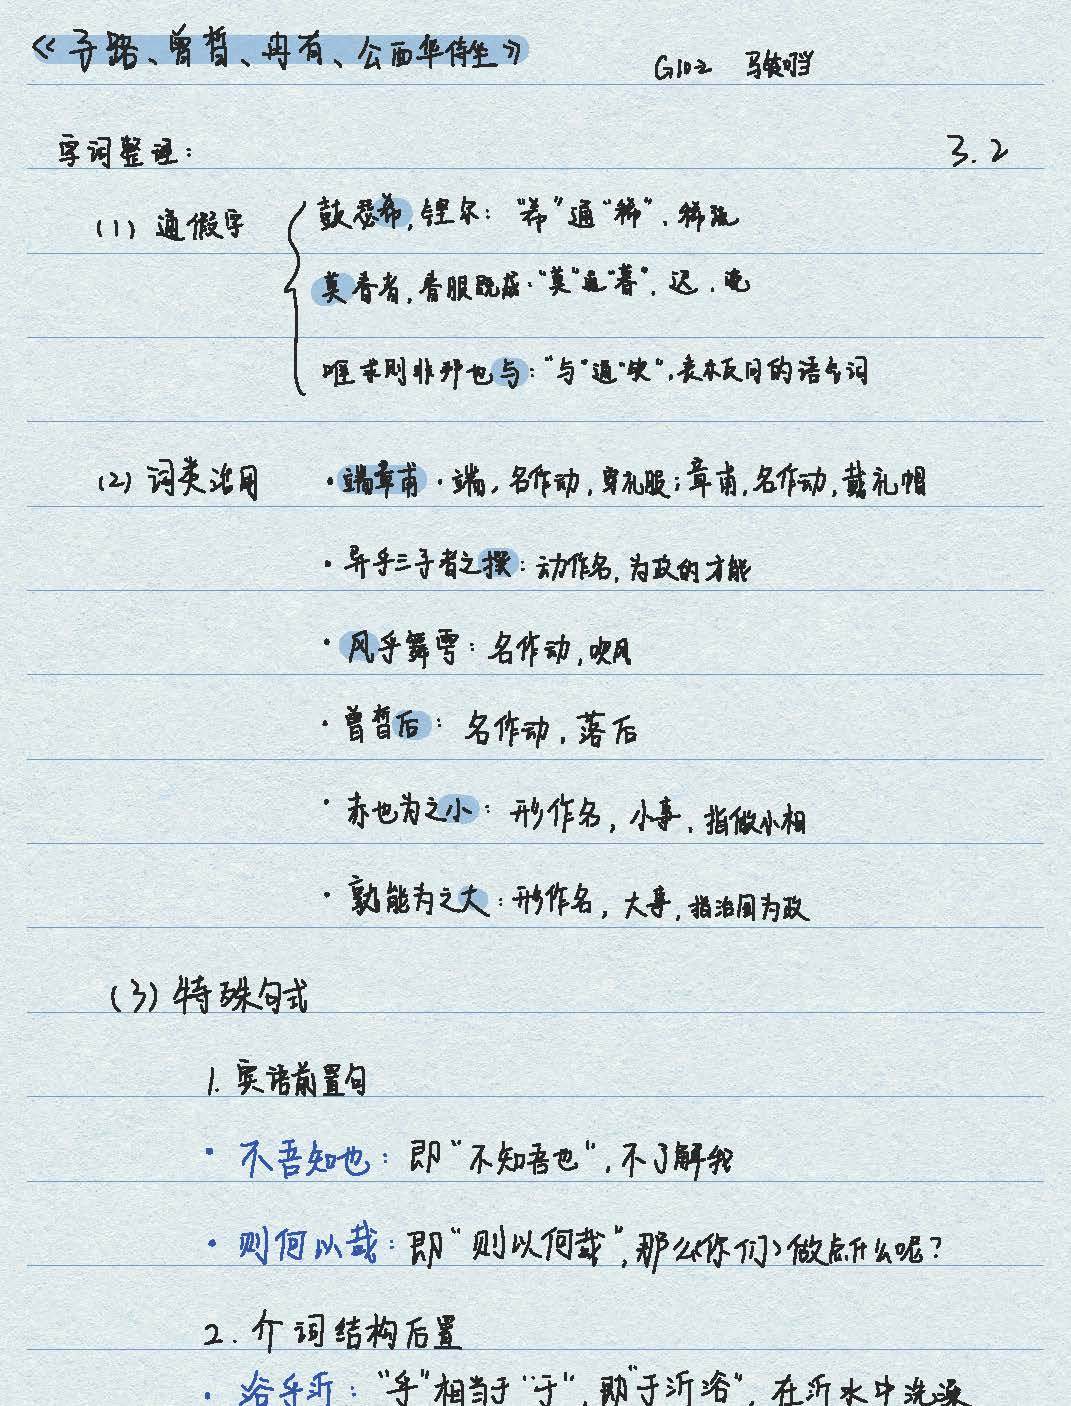 《子路、曾皙、冉有、公西华侍坐》
G10-2 马
字词整理： 3.2
(1) 通假字
鼓瑟希，铿尔："希"通"稀"，稀疏
莫春者，春服既成："莫"通"暮"，迟，晚
唯求则非邦也与："与"通"欤"，表示反问的语气词
(2) 词类活用 ·端章甫·端，名作动，穿礼服；章甫，名作动，戴礼帽
·异乎三子者之撰：动作名，为政的才能
·风乎舞雩：名作动，吹风
·曾皙后：名作动，落后
·赤也为之小：形作名，小事，指做小相
·孰能为之大：形作名，大事，指治国为政
(3) 特殊句式
1. 宾语前置句
·不吾知也：即"不知吾也"，不了解我
·则何以哉：即"则以何哉"，那么(你们)做点什么呢？
2. 介词结构后置
·浴乎沂："乎"相当于"于"，即"于沂浴"，在沂水中洗澡